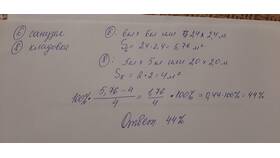 ⑥ санузел
⑧ кладовка
⑥: 6кл × 6кл или 24 × 24 м
С = 2,4 · 2,4 = 5,76 м²
⑧: 5кл × 5кл или 20 × 20 м
Sк = 2 · 2 = 4 м²
100% · (5,76 − 4)/4 = 1,76/4 · 100% = 0,44 · 100% = 44%
Ответ: 44%